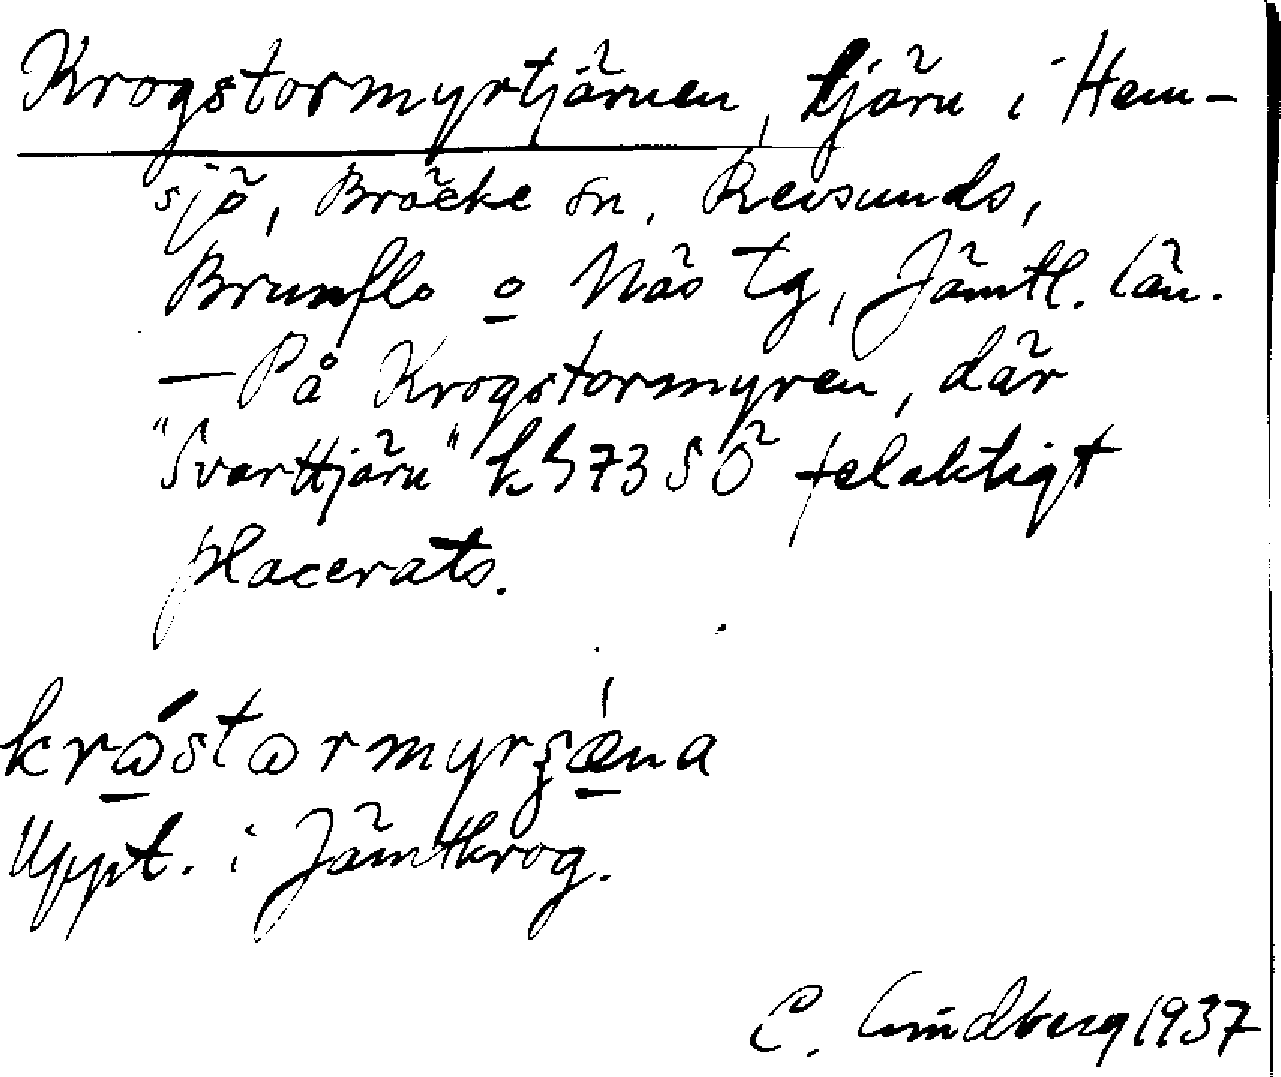 Krogstormyrtjärnen, tjärn i Hem-
sjö, Bräcke sn, Revsunds,
Brunflo o Näs tg, Jämtl. län.
— På Krogstormyren, där
"Svarttjärn" k b 73 S Ö felaktigt
placerats.
krɷ́stɷrmyrʂæ̀na
Uppt. i Jämtkrog.
C. Lindberg 1937